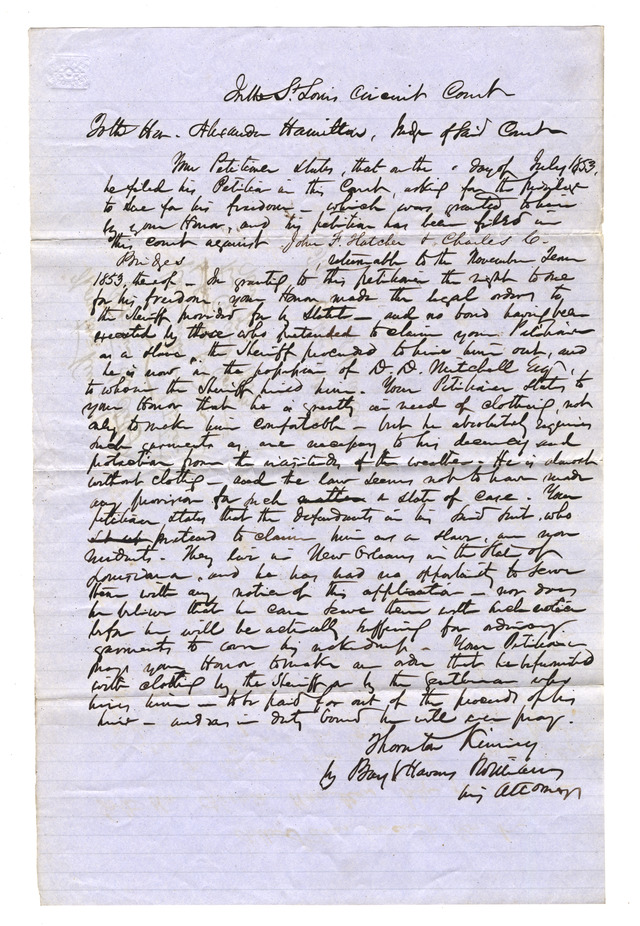 In the St. Louis Circuit Court
To the Hon. Alexander Hamilton, Judge of said Court
Your Petitioner states, that on the day of July 1853,
he filed his Petition in this Court, asking for the
to sue for his freedom, which was granted to him
by your Honor, and his petition has been filed in
this court against John F. Hatcher & Charles C.
Bridges returnable to the November Term
1853, thereof - In granting to this petitioner the right to sue
for his freedom your Honor made the legal orders to
the Sheriff provided for by Statute - and no bond having been
executed by those who pretended to claim your Petitioner
as a slave, the Sheriff proceeded to hire him out, and
he is now in the possession of D. D. Mitchell Esqr,
to whom the Sheriff hired him. Your Petitioner states to
your Honor that he is greatly in need of clothing, not
only to make him comfortable - but he absolutely requires
such garments as are necessary to his decency and
protection from the of the weather. He is almost
without clothing - and the law seems not to have made
any provision for such a state of case. Your
petitioner states that the defendants in his said suit, who
pretend to claim him as a slave, are non
residents. They live in New Orleans in the State of
Louisiana, and he has had no opportunity to serve
them with any notice of this application - nor does
he believe that he can serve them with such notice
before he will be actually suffering for ordinary
garments to cover his nakedness. Your Petitioner
prays your Honor to make an order that he be furnished
with clothing by the Sheriff or by the gentleman who
hires him - to be paid for out of the proceeds of his
hire - and as in duty bound he will ever pray.
Thornton Kinney
by Bay & Havens
his Attorneys